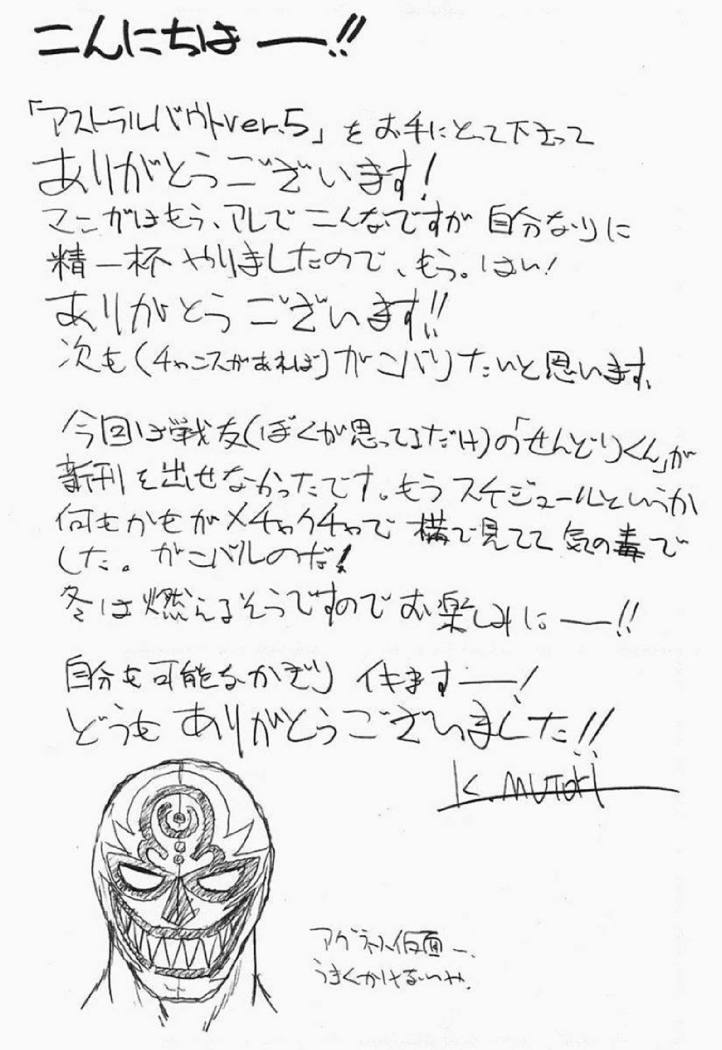 こんにちは ー!!
「アストラルバウトver.5」をお手にとって下さって
ありがとうございます!
マンガはもう、アレでこんなですが自分なりに
精一杯やりましたので、もう。はい!
ありがとうございます!!
次も(チャンスがあれば)ガンバリたいと思います。
今回は戦友(ぼくが思ってるだけ)の「せんどりくん」が
新刊を出せなかったです。もうスケジュールというか
何もかもがメチャクチャで横で見てて気の毒で
した。ガンバルのだ!
冬は燃えるそうですのでお楽しみにー!!
自分も可能なかぎりイキますー!
どうもありがとうございました!!
K.MUTOH
アグネス仮面ー。
うまくかけないや。